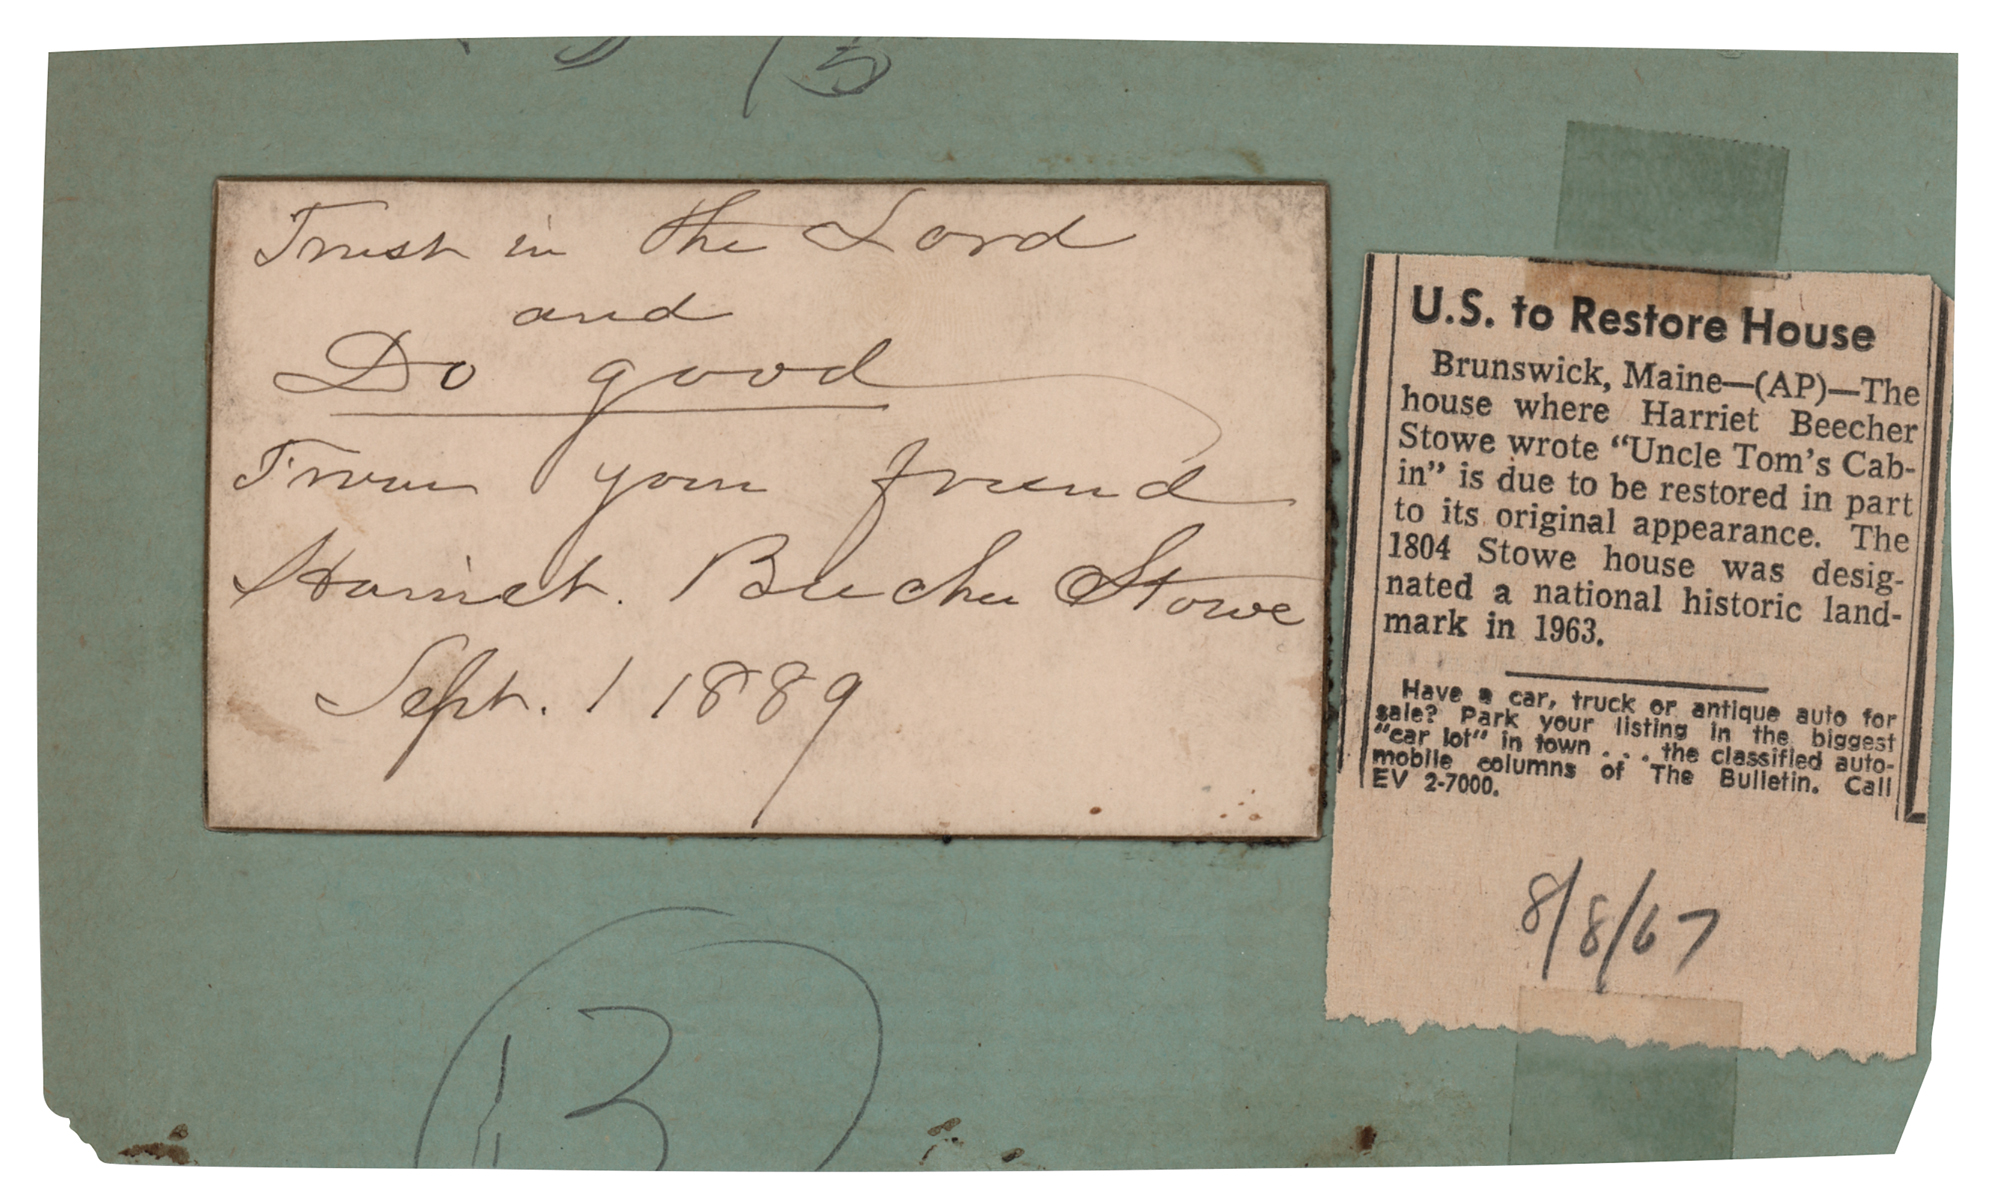 Trust in the Lord
and
Do good
From your friend
Harriet Beecher Stowe
Sept. 1 1889
U.S. to Restore House
Brunswick, Maine—(AP)—The
house where Harriet Beecher
Stowe wrote “Uncle Tom’s Cab-
in” is due to be restored in part
to its original appearance. The
1804 Stowe house was desig-
nated a national historic land-
mark in 1963.
Have a car, truck or antique auto for
sale? Park your listing in the biggest
“car lot” in town . . . the classified auto-
mobile columns of The Bulletin. Call
EV 2-7000.
8/8/67
13